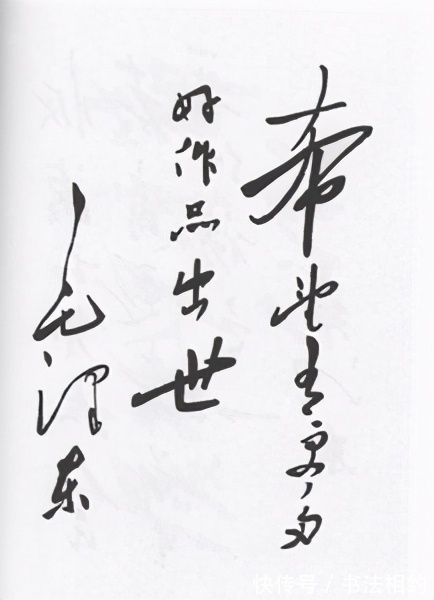 希望有更多
好作品出世
毛泽东
快传号 / 书法相约